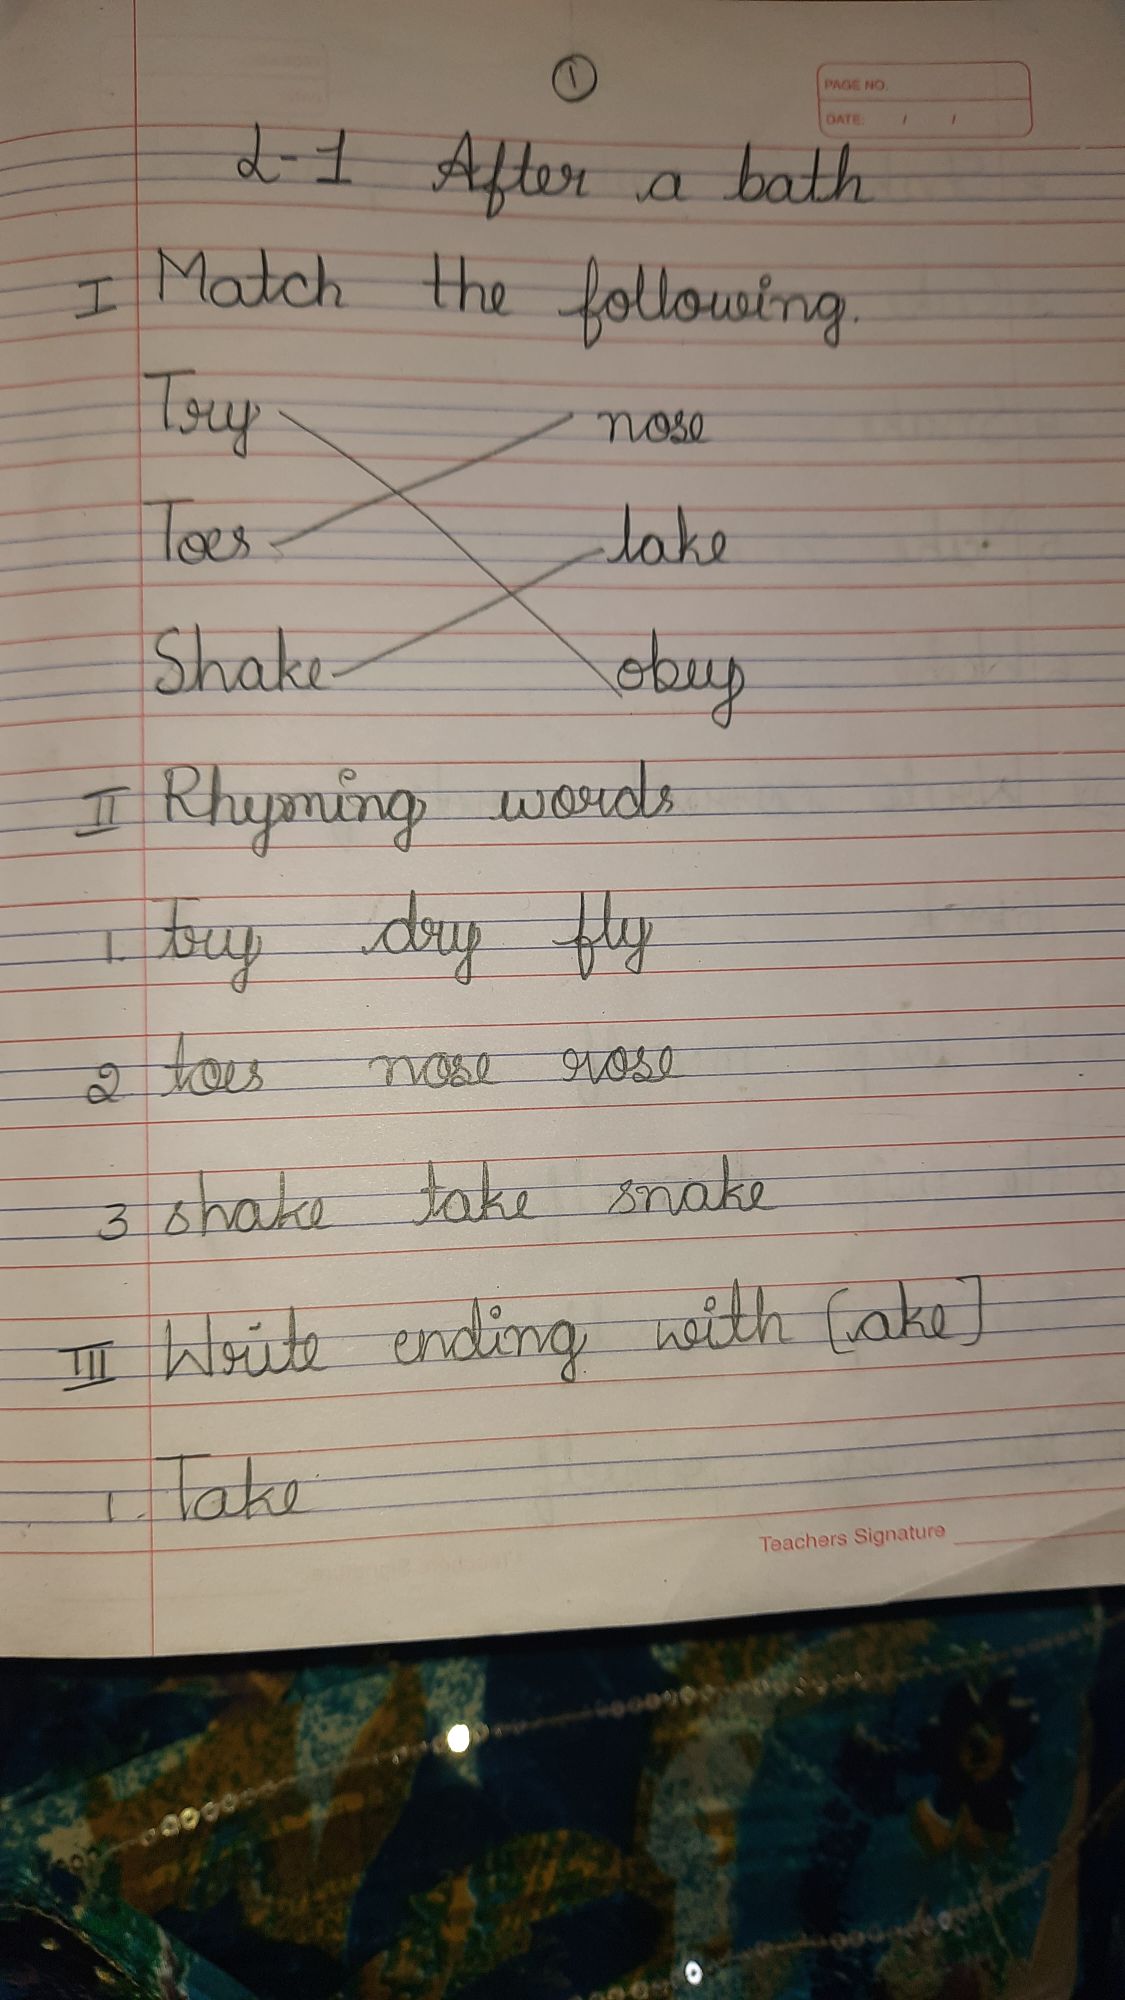 1
PAGE NO.
DATE: / /
L-1 After a bath
I Match the following.
Try nose
Toes take
Shake obey
II Rhyming words
1. try dry fly
2 toes nose rose
3 shake take snake
III Write ending with [ake]
1. Take
Teachers Signature